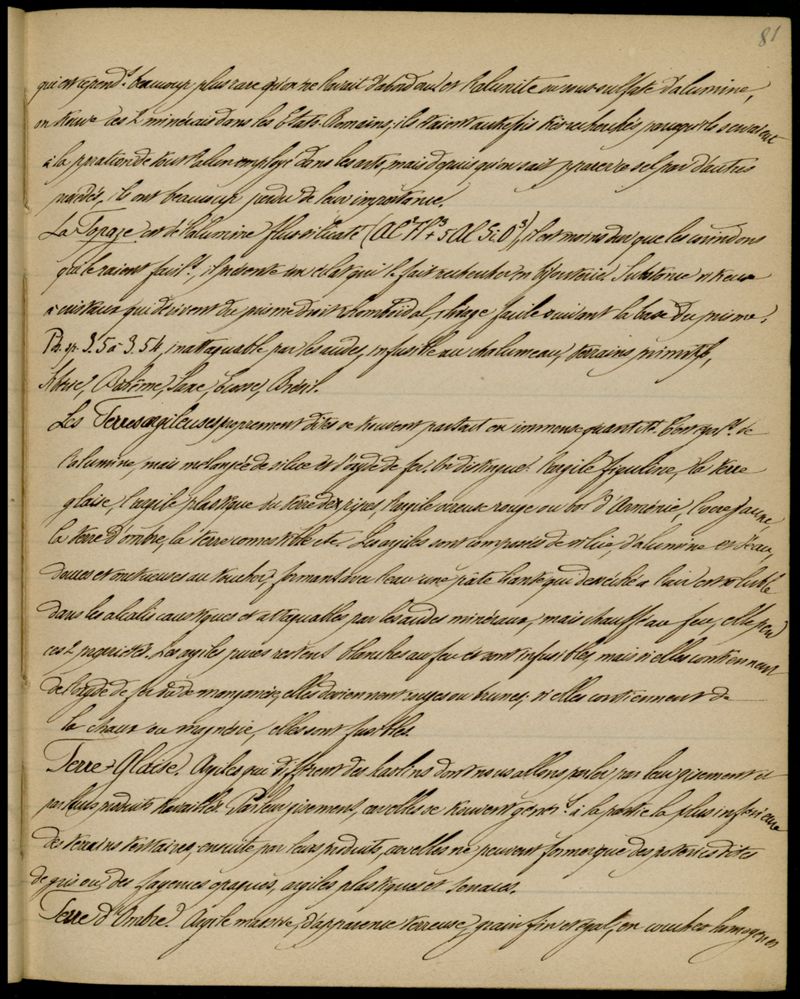 81
qui est cepend.t beaucoup plus rare qu'on ne l'avait d'abord cru et l'alunite ou sous-sulfate d'alumine,
on trouve ces 2 minérais dans les Etats Romains; ils étaient autrefois très recherchés parcequ'ils servaient
à la pration de tout l'alun employé dans les arts, mais depuis qu'on sait préparer ce sel par d'autres
procédés, ils ont beaucoup perdu de leur importance.
La Topaze est de l'alumine fluo-silicatée il est moins dur que les corindons
qu'il raient facil.t, il présente un éclat qui le fait rechercher en bijouterie. Substance vitreuse
à cristaux qui dérivent du prisme droit rhomboïdal, clivage facile suivant la base du prisme,
P.ds sp. 3.5 à 3.54, inattaquable par les acides, infusible au chalumeau, terrains primitifs,
Sibérie, Bohême, Saxe, Ecosse, Brésil.
Les Terres argileuses proprement dites se trouvent partout en immense quantité. C'est de
l'alumine, mais mélangée de silice et d'oxyde de fer. On distingue: l'argile figuline, la terre
glaise, l'argile plastique ou terre de pipes, l'argile ocreuse rouge ou bol d'Arménie, l'ocre jaune,
la terre d'ombre, la terre comestible etc. Les argiles sont composées de silice, d'alumine et d'eau,
douces et onctueuses au toucher, formant avec l'eau une pâte liante qui desséchée à l'air est soluble
dans les alcalis caustiques et attaquables par les acides minéraux, mais chauffé au feu, elle perd
ces 2 propriétés. Les argiles pures restent blanches au feu et sont infusibles, mais si elles contiennent
de l'oxyde de fer ou de manganèse, elles deviennent rouges ou brunes; si elles contiennent de
la chaux ou magnésie, elles sont fusibles.
Terre-Glaise. Argiles qui diffèrent des kaolins dont nous allons parler, par leur gisement et
par leurs produits travaillés. Par leur gisement, car elles se trouvent génér.t à la partie la plus inférieure
des terrains tertiaires, ensuite par leurs produits, car elles ne peuvent former que des poteries dites
de grès ou des fayences opaques, argiles plastiques et tenaces.
Terre d'Ombre. Argile massive, d'apparence terreuse, grain fin et égal, en couches homogènes